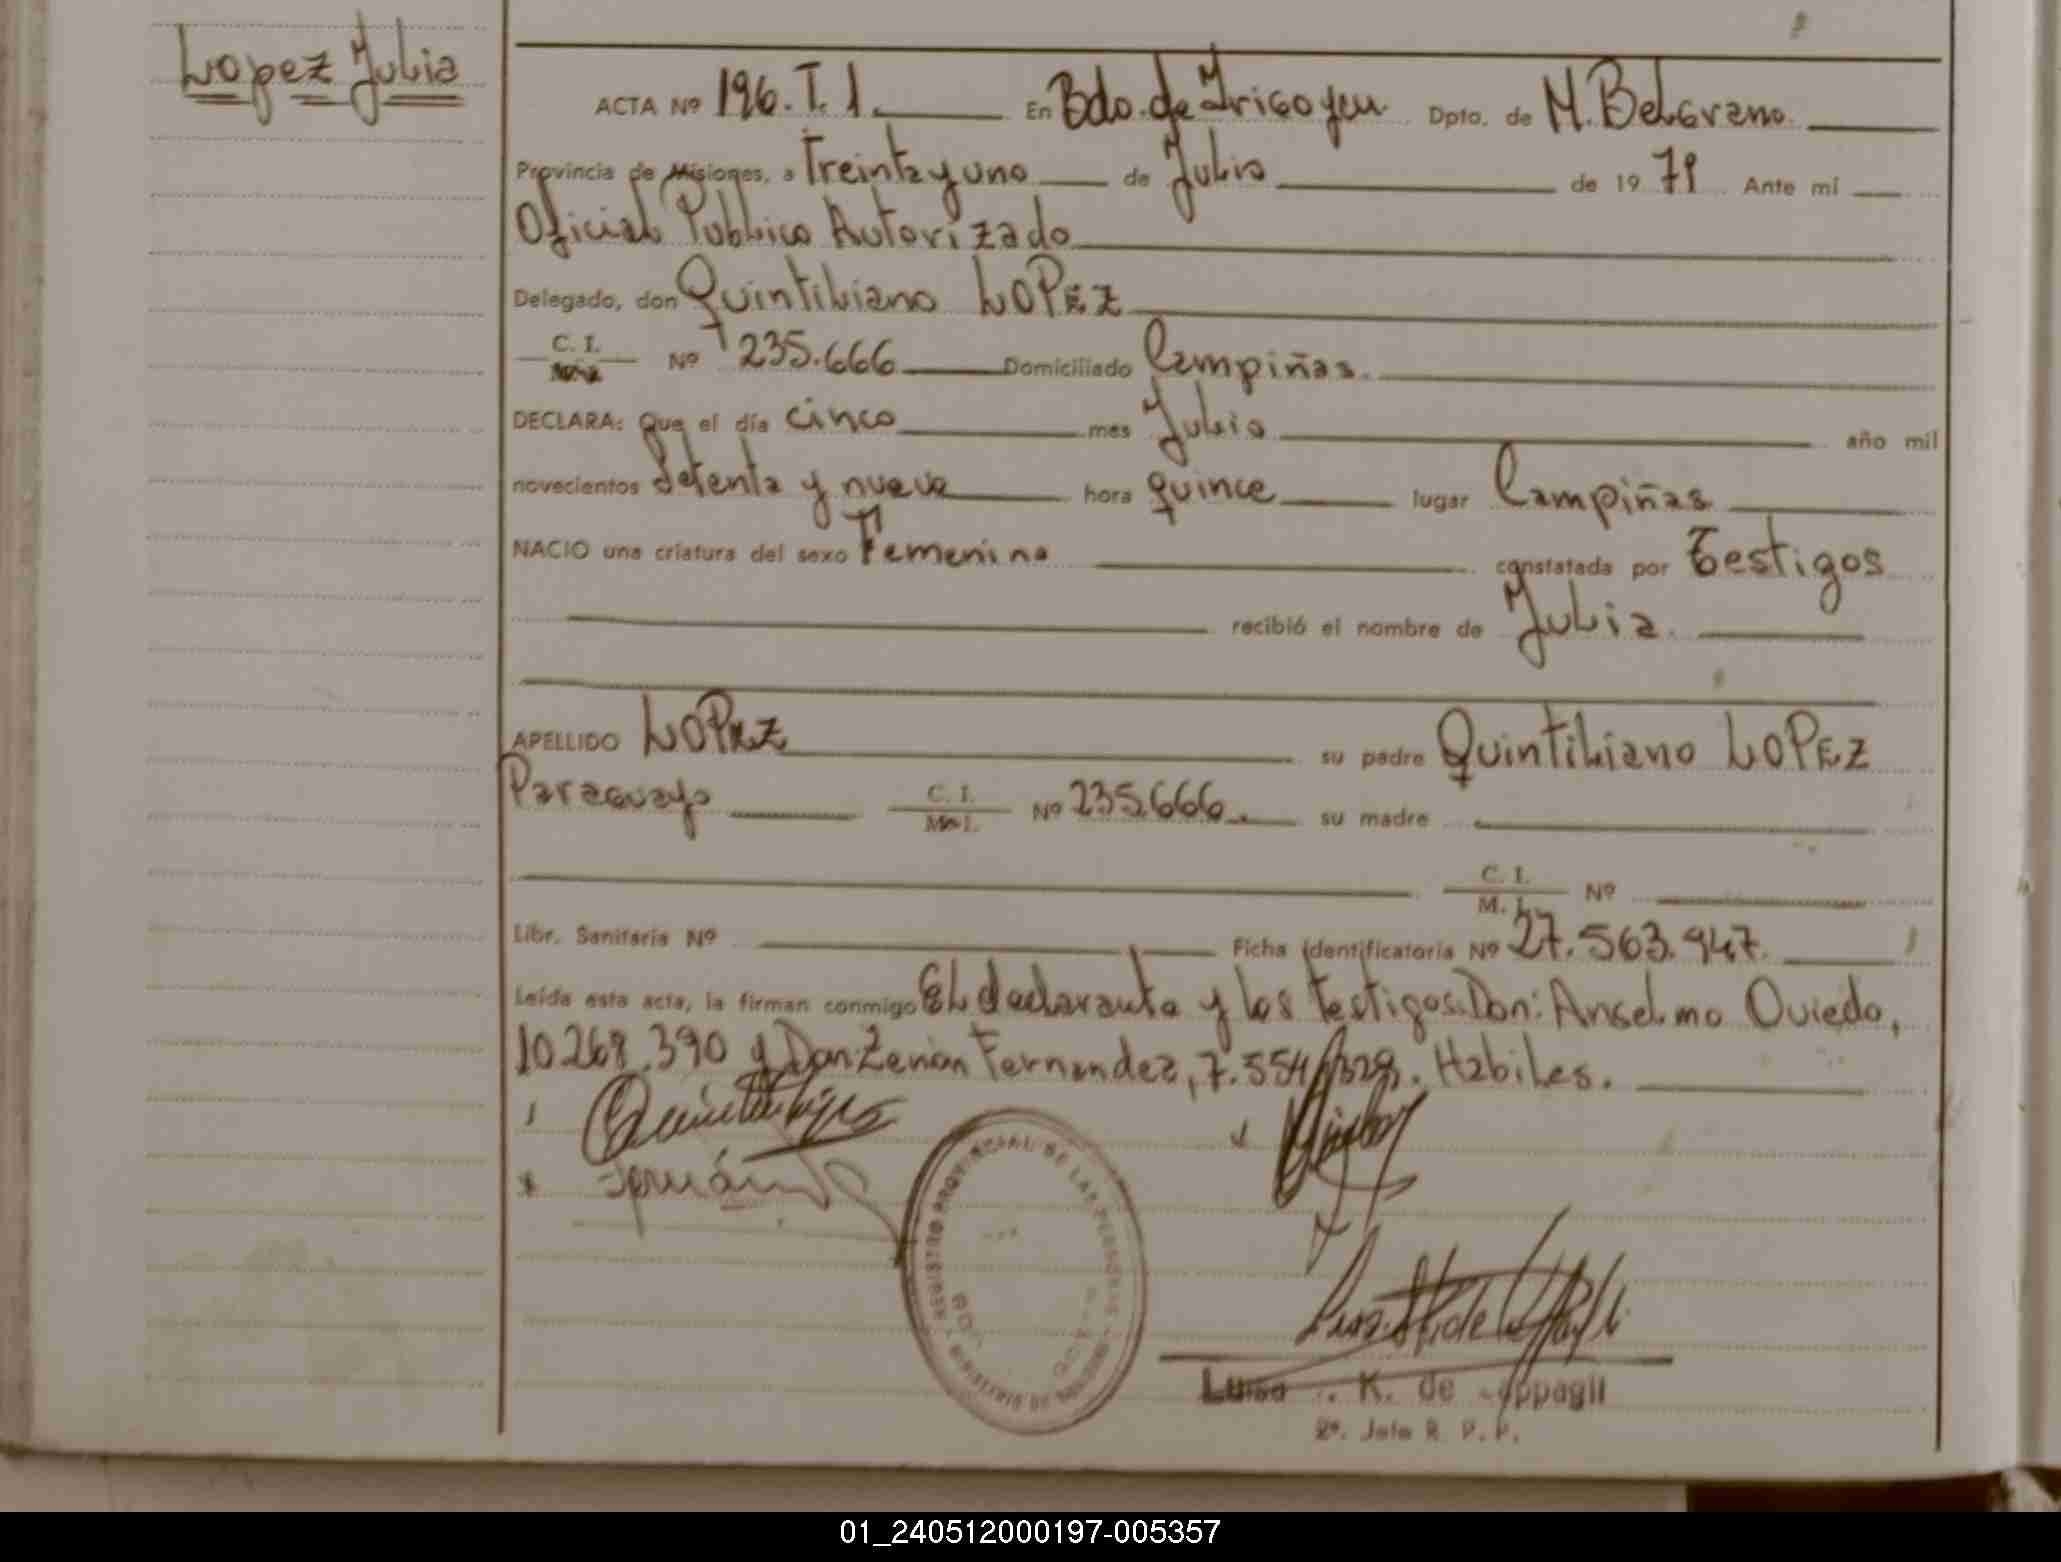 Lopez Julia
ACTA Nº 196. T. 1. En Bdo. de Irigoyen Dpto. de M. Belgrano.
Provincia de Misiones, a Treinta y uno de Julio de 19 79 Ante mí
Oficial Público Autorizado
Delegado, don Quintiliano LOPEZ
C. I. Nº 235.666 Domiciliado Campiñas.
DECLARA: Que el día cinco mes Julio año mil
novecientos setenta y nueve hora quince lugar Campiñas
NACIO una criatura del sexo Femenino constatada por Testigos
recibió el nombre de Julia.
APELLIDO LOPEZ su padre Quintiliano LOPEZ
Paraguayo C. I. M. I. Nº 235.666. su madre
C. I. M. I. Nº
Libr. Sanitaria Nº Ficha Identificatoria Nº 27.563.947.
Leída esta acta, la firman conmigo El declarante y los Testigos. Don: Anselmo Oviedo,
10.268.390 y Don Zenón Fernandez, 7.554.328. Habiles.
REGISTRO PROVINCIAL DE LAS PERSONAS
Luisa K. de
2º. Jefe R. P. P.
01_240512000197-005357